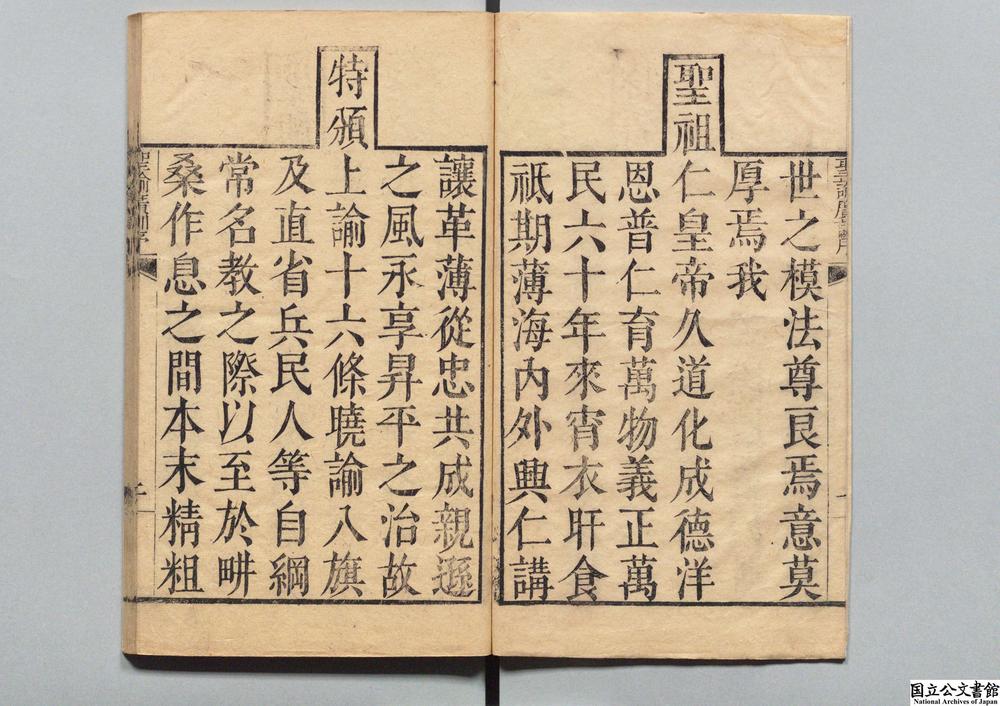 世之模法尊艮焉意莫
厚焉我
聖祖仁皇帝久道化成德洋
恩普仁育萬物義正萬
民六十年來宵衣旰食
祗期薄海內外興仁講
讓革薄從忠共成親遜
之風永享昇平之治故
特頒
上諭十六條曉諭八旗
及直省兵民人等自綱
常名教之際以至於畊
桑作息之間本末精粗
国立公文書館
National Archives of Japan